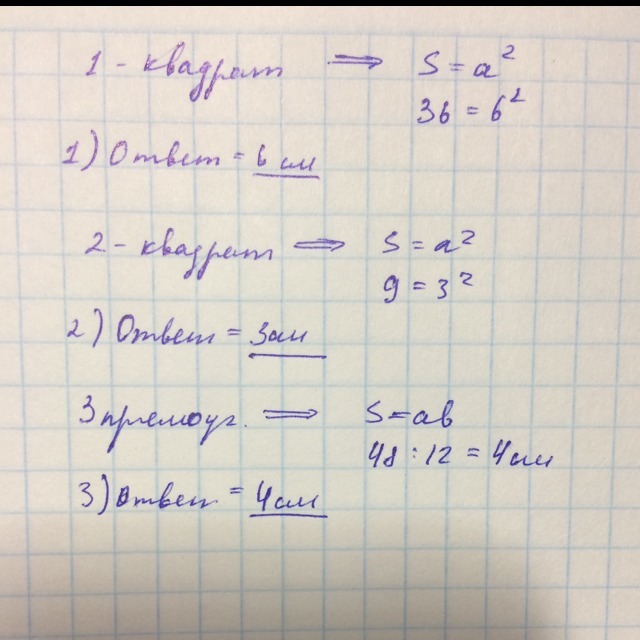 1 - квадрат ⟹ S = a²
36 = 6²
1) Ответ = 6 см
2 - квадрат ⟹ S = a²
9 = 3²
2) Ответ = 3 см
3 прямоуг. ⟹ S = ab
48 : 12 = 4 см
3) Ответ = 4 см